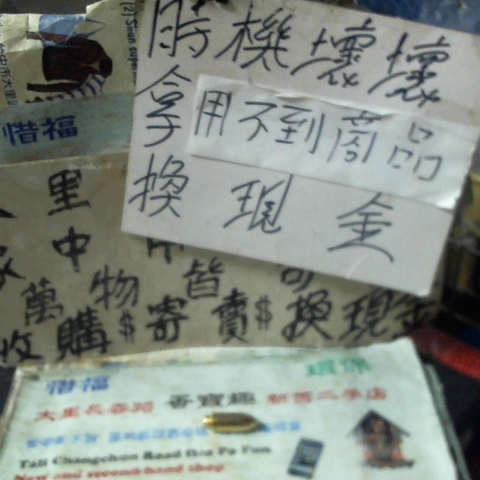 惜福
時機壞壞
拿用不到商品
換現金
里
家中
萬物皆可
收購$寄賣$換現金
惜福 環保
大里長春路 香寶趣 新舊二手店
Tali Changchun Road Hsa Po Fun
New and second-hand shop